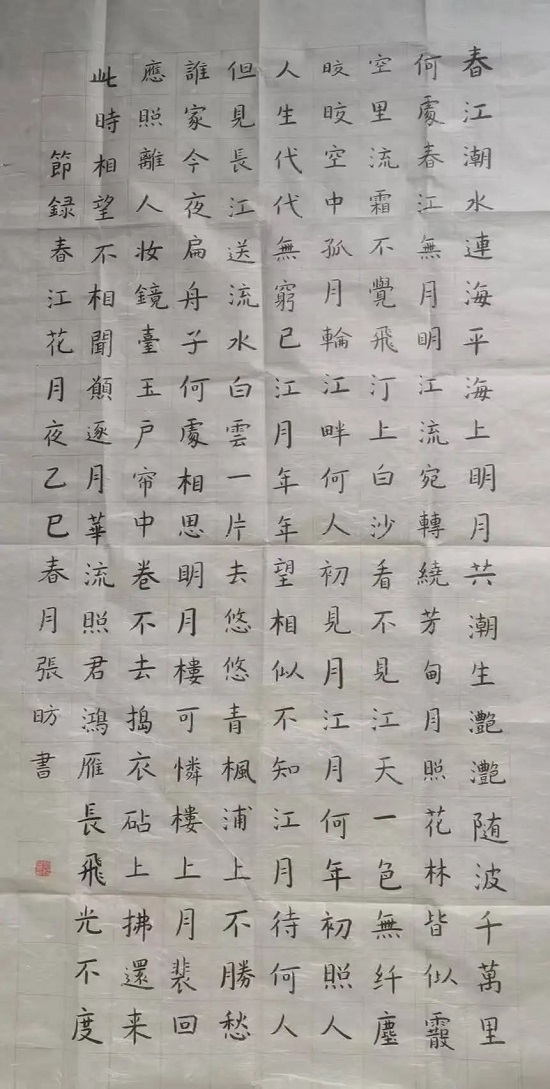 春江潮水連海平海上明月共潮生灧灧随波千萬里
何處春江無月明江流宛轉繞芳甸月照花林皆似霰
空里流霜不覺飛汀上白沙看不見江天一色無纤塵
晈晈空中孤月輪江畔何人初見月江月何年初照人
人生代代無窮已江月年年望相似不知江月待何人
但見長江送流水白雲一片去悠悠青楓浦上不勝愁
誰家今夜扁舟子何處相思明月樓可憐樓上月裴回
應照離人妆鏡臺玉戶帘中卷不去搗衣砧上拂還来
此時相望不相聞願逐月華流照君鴻雁長飛光不度
節録春江花月夜乙巳春月張昉書